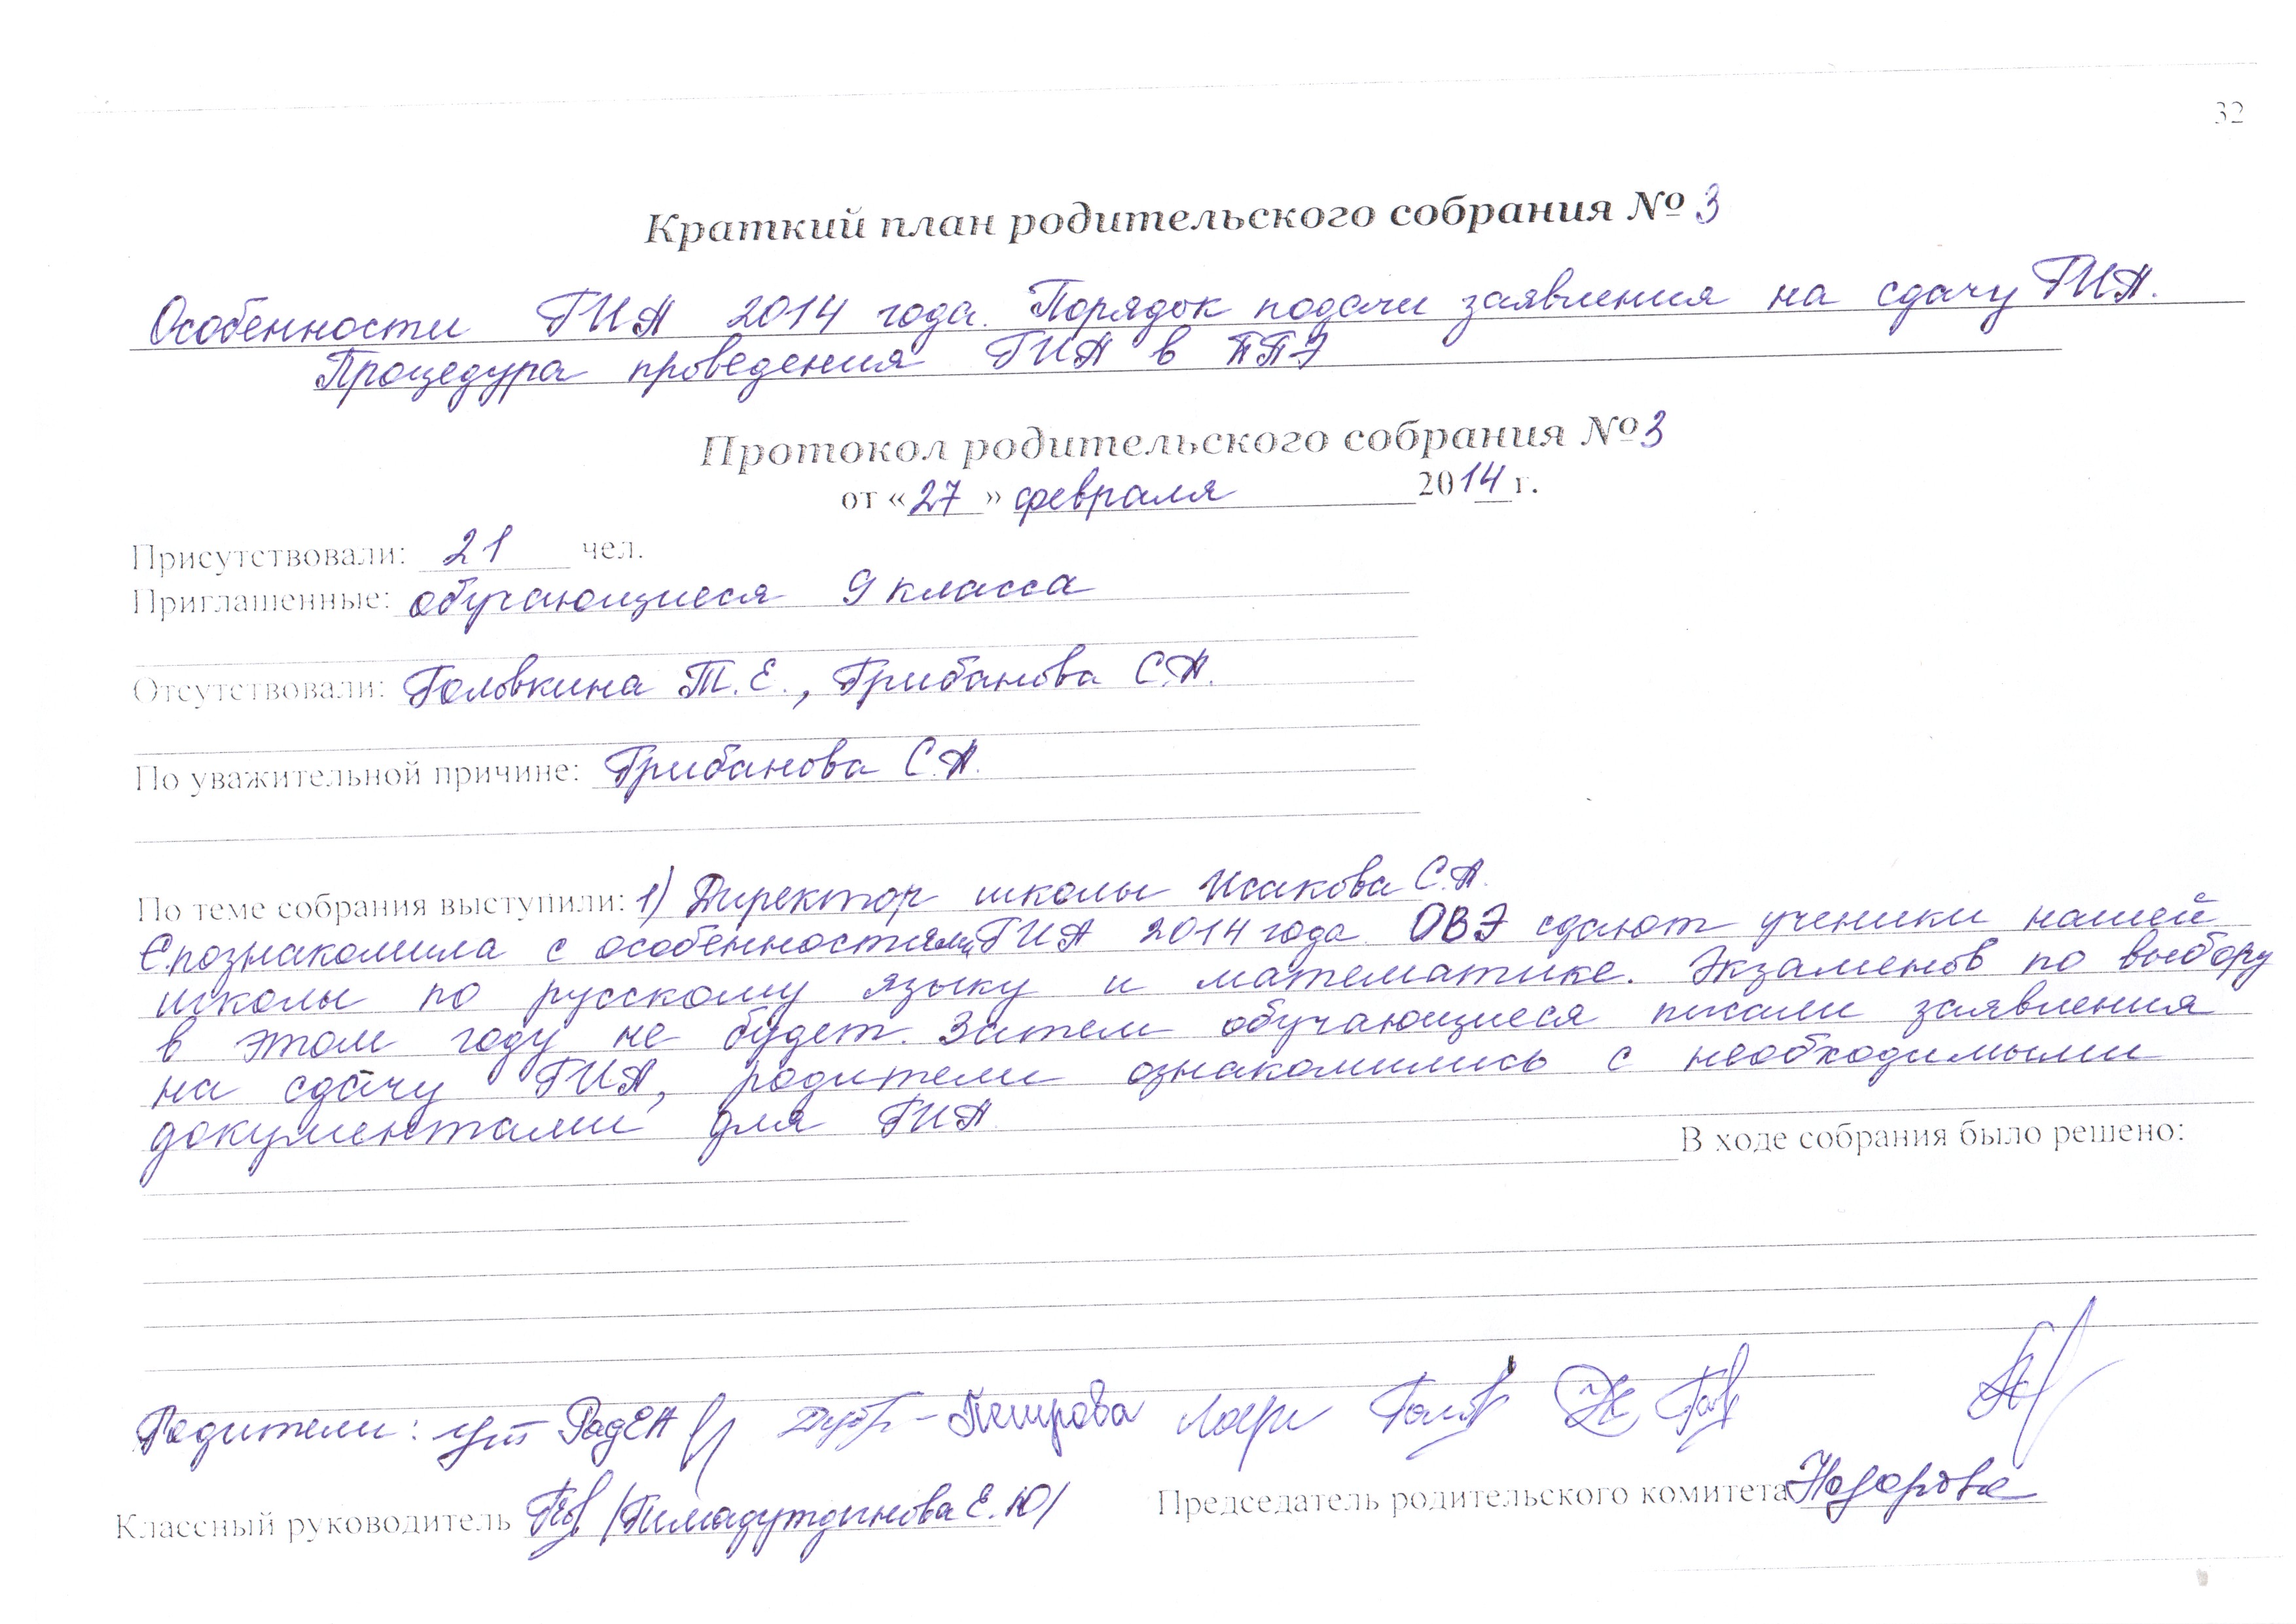 32
Краткий план родительского собрания № 3
Особенности ГИА 2014 года. Порядок подачи заявления на сдачу ГИА.
Процедура проведения ГИА в ППЭ
Протокол родительского собрания № 3
от «27» февраля 2014 г.
Присутствовали: 21 чел.
Приглашенные: обучающиеся 9 класса
Отсутствовали: Головкина Т.Е., Грибанова С.А.
По уважительной причине: Грибанова С.А.
По теме собрания выступили: 1) Директор школы Исакова С.А.
познакомила с особенностями ГИА 2014 года. ОВЭ сдают ученики нашей
школы по русскому языку и математике. Экзаменов по выбору
в этом году не будет. Затем обучающиеся писали заявления
на сдачу ГИА, родители ознакомились с необходимыми
документами для ГИА.
В ходе собрания было решено:
Родители: Петрова
Классный руководитель /Гимадутдинова Е.Ю/ Председатель родительского комитета